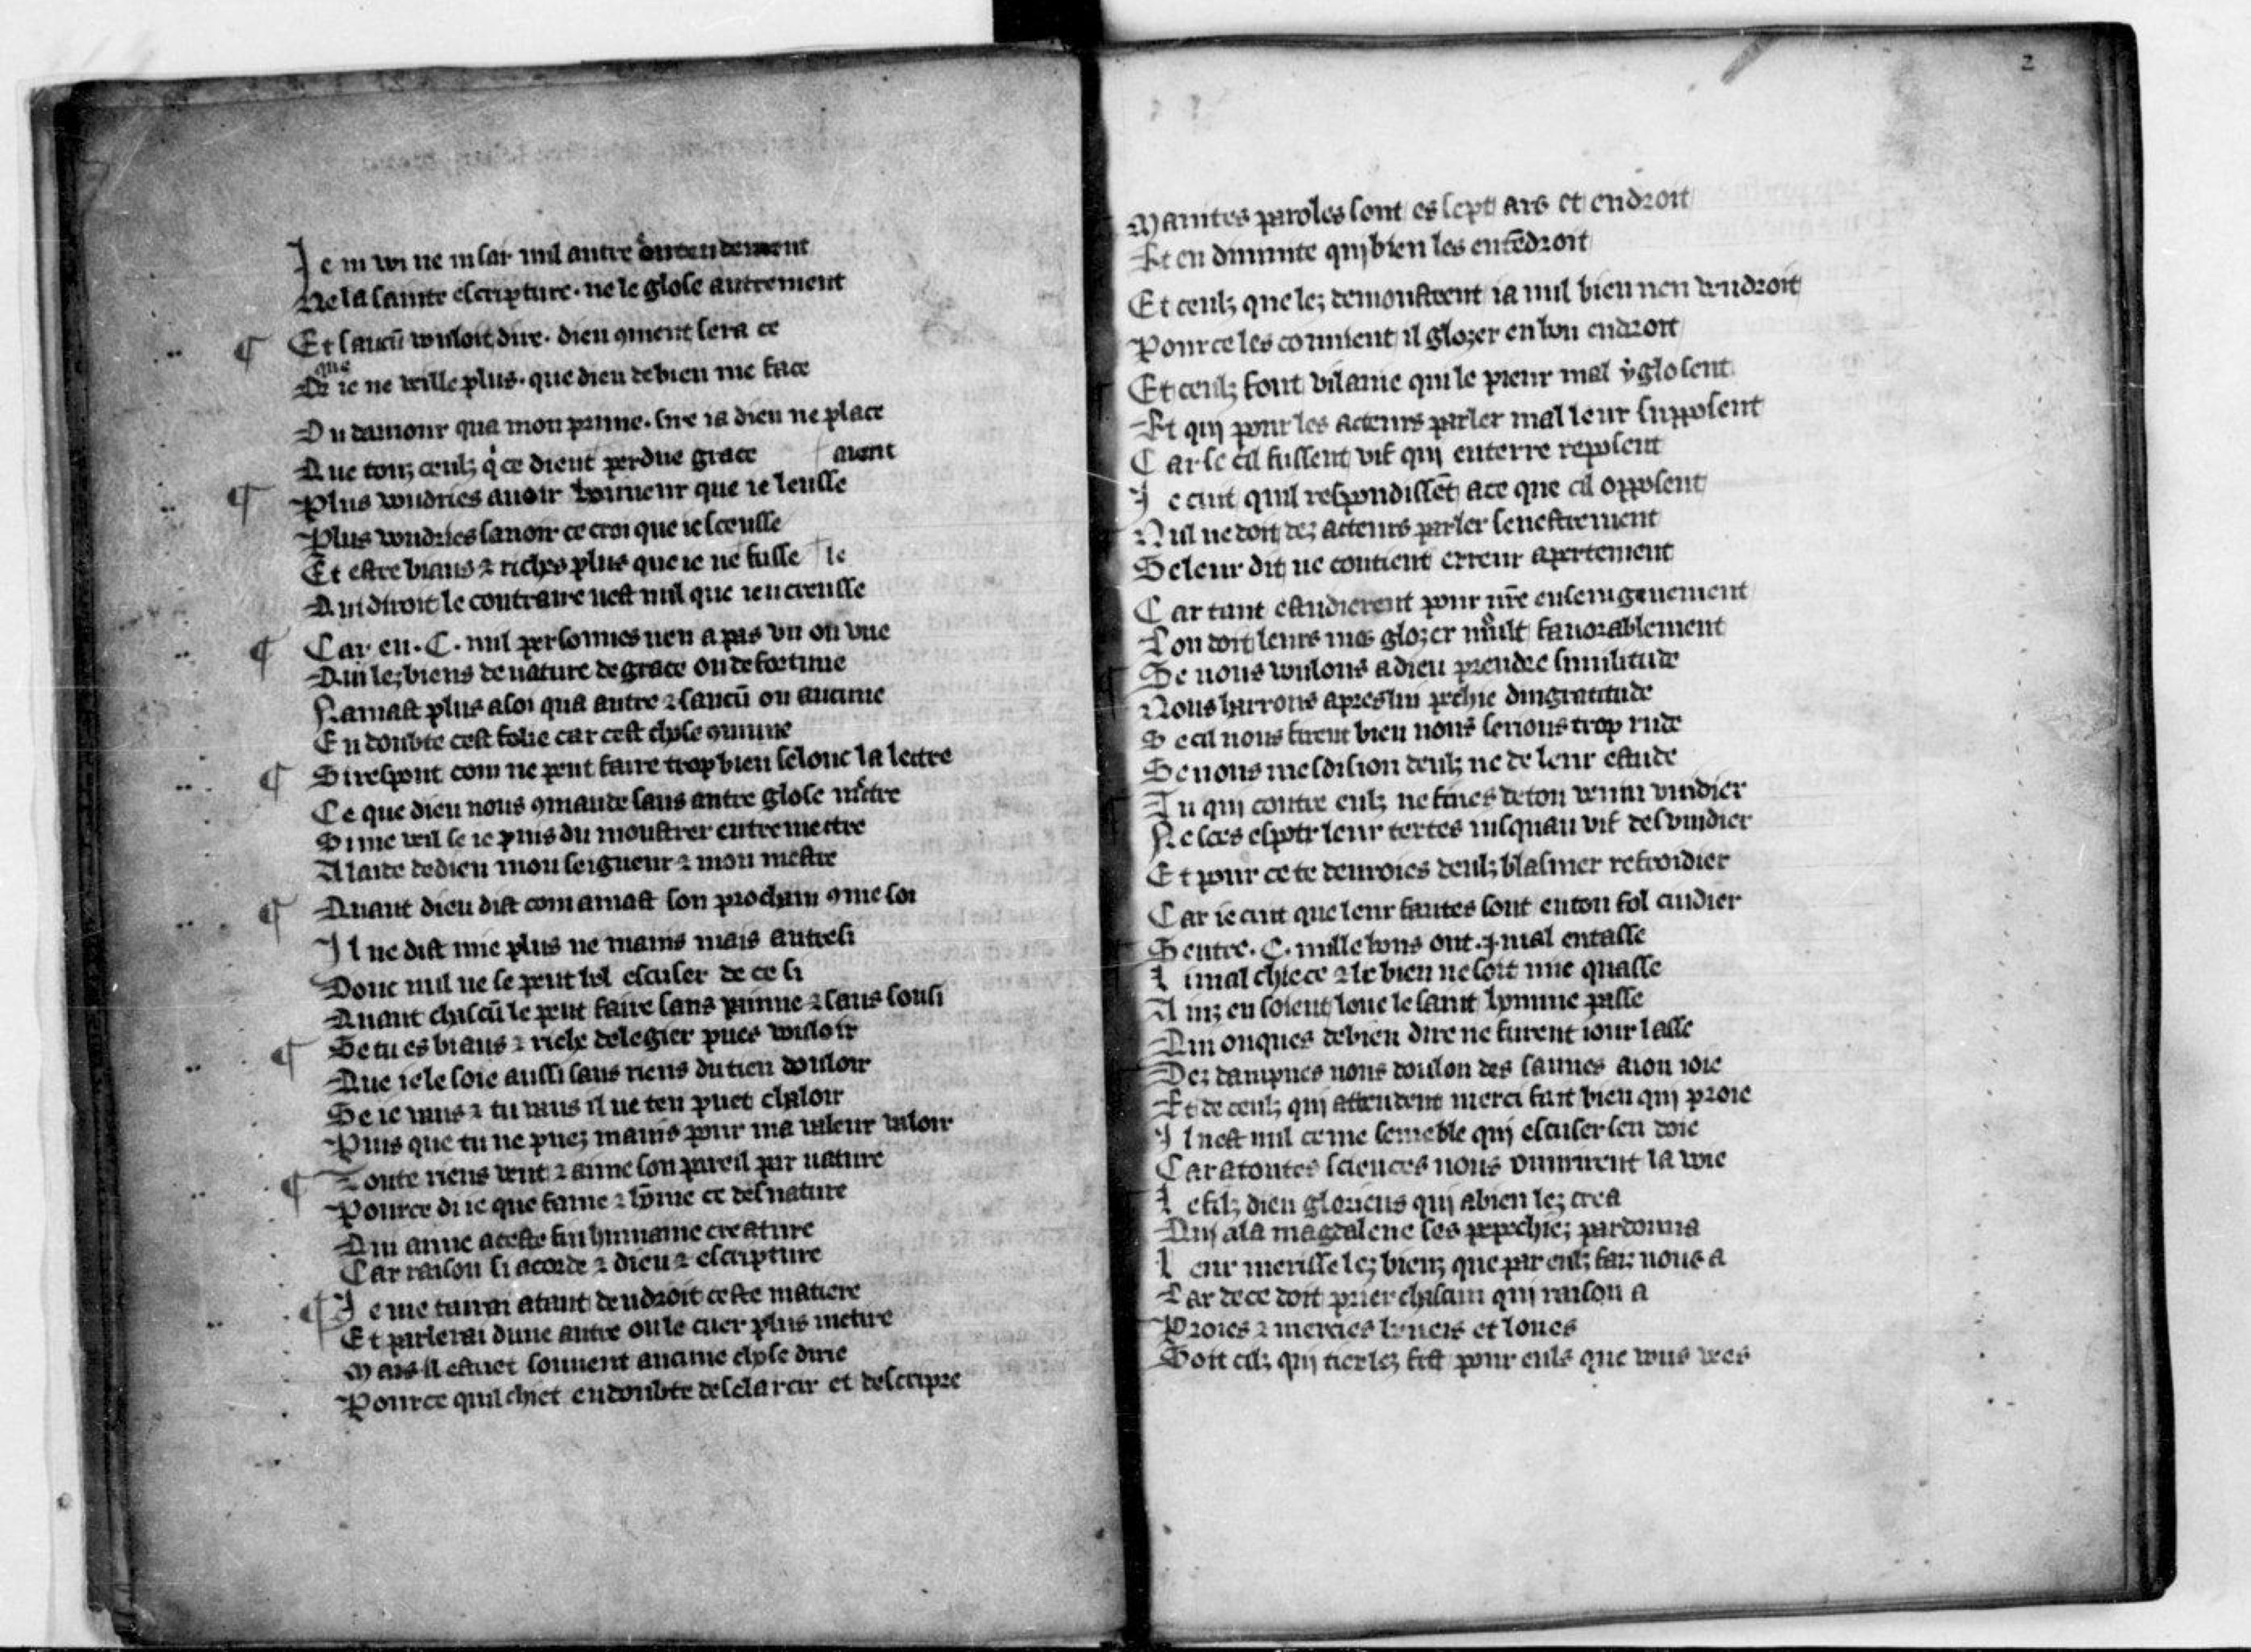 Je ni voi ne ni sai nul autre entendement
Ne la sainte escripture. ne le glose autrement
¶ Et saucū vouloit dire. dieu ꝯment sera ce
que ie ne veille plus. que dieu de bien me face
Ou damour qua mon prime. sire ia dieu ne place
Que touz ceulz q̄ ce dient perdue grace aient
¶ Plus voudries auoir honneur que ie leusse
Plus voudries sauoir ce croi que ie sceusse
Et estre biaus ⁊ riches plus que ie ne fusse ie
Qui diroit le contraire nest nul que ien creusse
¶ Car en .C. mil personnes nen a pas vn ou vne
Qui lez biens de nature de grace ou de fortune
Namast plus a soi qua autre ⁊ saucū ou aucune
En doubte cest folie car cest chose ꝯmune
¶ Si respont com ne peut faire trop bien selonc la lettre
Ce que dieu nous ꝯmande sans autre glose mettre
Si me veil se ie puis du moustrer entremettre
A laide de dieu mon seigneur ⁊ mon mestre
¶ Quant dieu dist com amast son prochain ꝯme soi
Il ne dist mie plus ne mains mais autresi
Donc nul ne se peut bel escuser de ce si
Quant chascū le peut faire sans paine ⁊ sans sousi
¶ Se tu es biaus ⁊ riche de legier pues vouloir
Que ie le soie aussi sans riens du tien douloir
Se ie vaus ⁊ tu vaus il ne ten puet chaloir
Puis que tu ne puez mains pour ma valeur valoir
¶ Toute riens veut ⁊ aime son pareil par nature
Pource di ie que fame ⁊ hōme ce desnature
Qui aime aceste fin humaine creature
Car raison si acorde ⁊ dieu ⁊ escripture
¶ Je me tairai atant de vdroit ceste matiere
Et parlerai dune autre ou le cuer plus metire
Mais il estuet souuent aucune chose dire
Pource quil chiet en doubte desclarcir et descripre
2
Maintes paroles sont es sept ars et en droit
Et en diuinite qui bien les entēdroit
Et ceulz que lez demonstrent ia nul bien nen vendroit
Pour ce les conuient il glozer en bon endroit
Et ceulz font vilanie qui le pieur mal y glosent
Et qui pour les acteurs parler mal leur supposent
Car se cil fussent vif qui en terre reposent
Je cuit quil respondissēt a ce que cil opposent
Nul ne doit dez acteurs parler senestrement
Se leur dit ne contient erreur apertement
Car tant estudierent pour nr̄e enseingnement
Con doit leurs mos glozer moult fauorablement
Se nous voulons a dieu prendre similitude
Nous harrons apres lui pechie dingratitude
Se cil nous firent bien nous serions trop rude
Se nous mesdision deulz ne de leur estude
Tu qui contre eulz ne fines de ton venin vuidier
Ne sces espoir leur fertes iusquau vif desvuidier
Et pour ce te deuroies deulz blasmer refroidier
Car ie cuit que leur fautes sont en ton fol cuidier
Sentre .C. mille bons ont .j. mal entasse
Li mal chiece ⁊ le bien ne soit mie quasse
Ainz en soient loue le saint homme passe
Qui onques de bien dire ne furent iour lasse
Dez dampnes nous doulon des sauues aion ioie
Et de ceulz qui attendent merci fait bien qui proie
Il nest nul ce me semeble qui escuser sen doie
Car a toutes sciences nous ouurirent la voie
Le filz dieu glorieus qui a bien lez crea
Qui a la magdalene ses pepechiez pardonna
Leur merisse lez bienz que par eulz faiz nous a
Car de ce doit prier chascun qui raison a
Proies ⁊ mercies honeis et loues
Soit cilz qui tierlez fist pour euls que vous vees